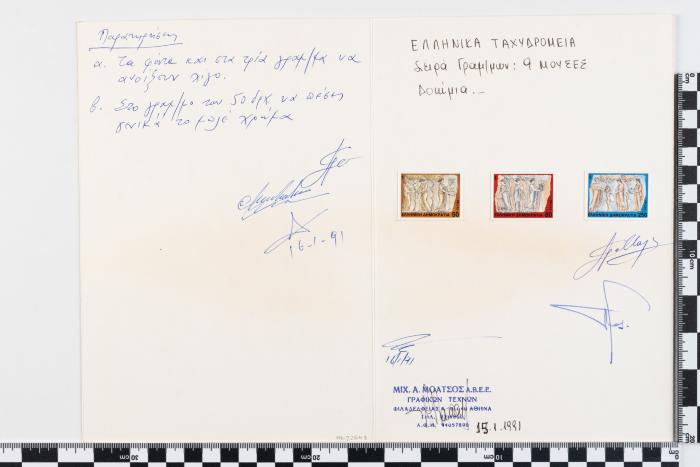 Παρατηρήσεις
α. Τα φόντα και στα τρία γραμ/μα να
ανοίξουν λίγο.
β. Στο γραμ/μο των 50 δρχ. να πέσει
γενικά το μπλέ χρώμα
16-1-91
ΕΛΛΗΝΙΚΑ ΤΑΧΥΔΡΟΜΕΙΑ
Σειρά Γραμ/μων: 9 ΜΟΥΣΕΣ
Δοκίμια._
ΕΛΛΗΝΙΚΗ ΔΗΜΟΚΡΑΤΙΑ 50
ΕΛΛΗΝΙΚΗ ΔΗΜΟΚΡΑΤΙΑ 80
ΕΛΛΗΝΙΚΗ ΔΗΜΟΚΡΑΤΙΑ 250
16/1/91
ΜΙΧ. Α. ΜΟΑΤΣΟΣ Α.Β.Ε.Ε.
ΓΡΑΦΙΚΩΝ ΤΕΧΝΩΝ
ΦΙΛΑΔΕΛΦΕΙΑΣ ΑΘΗΝΑ
15.1.1991